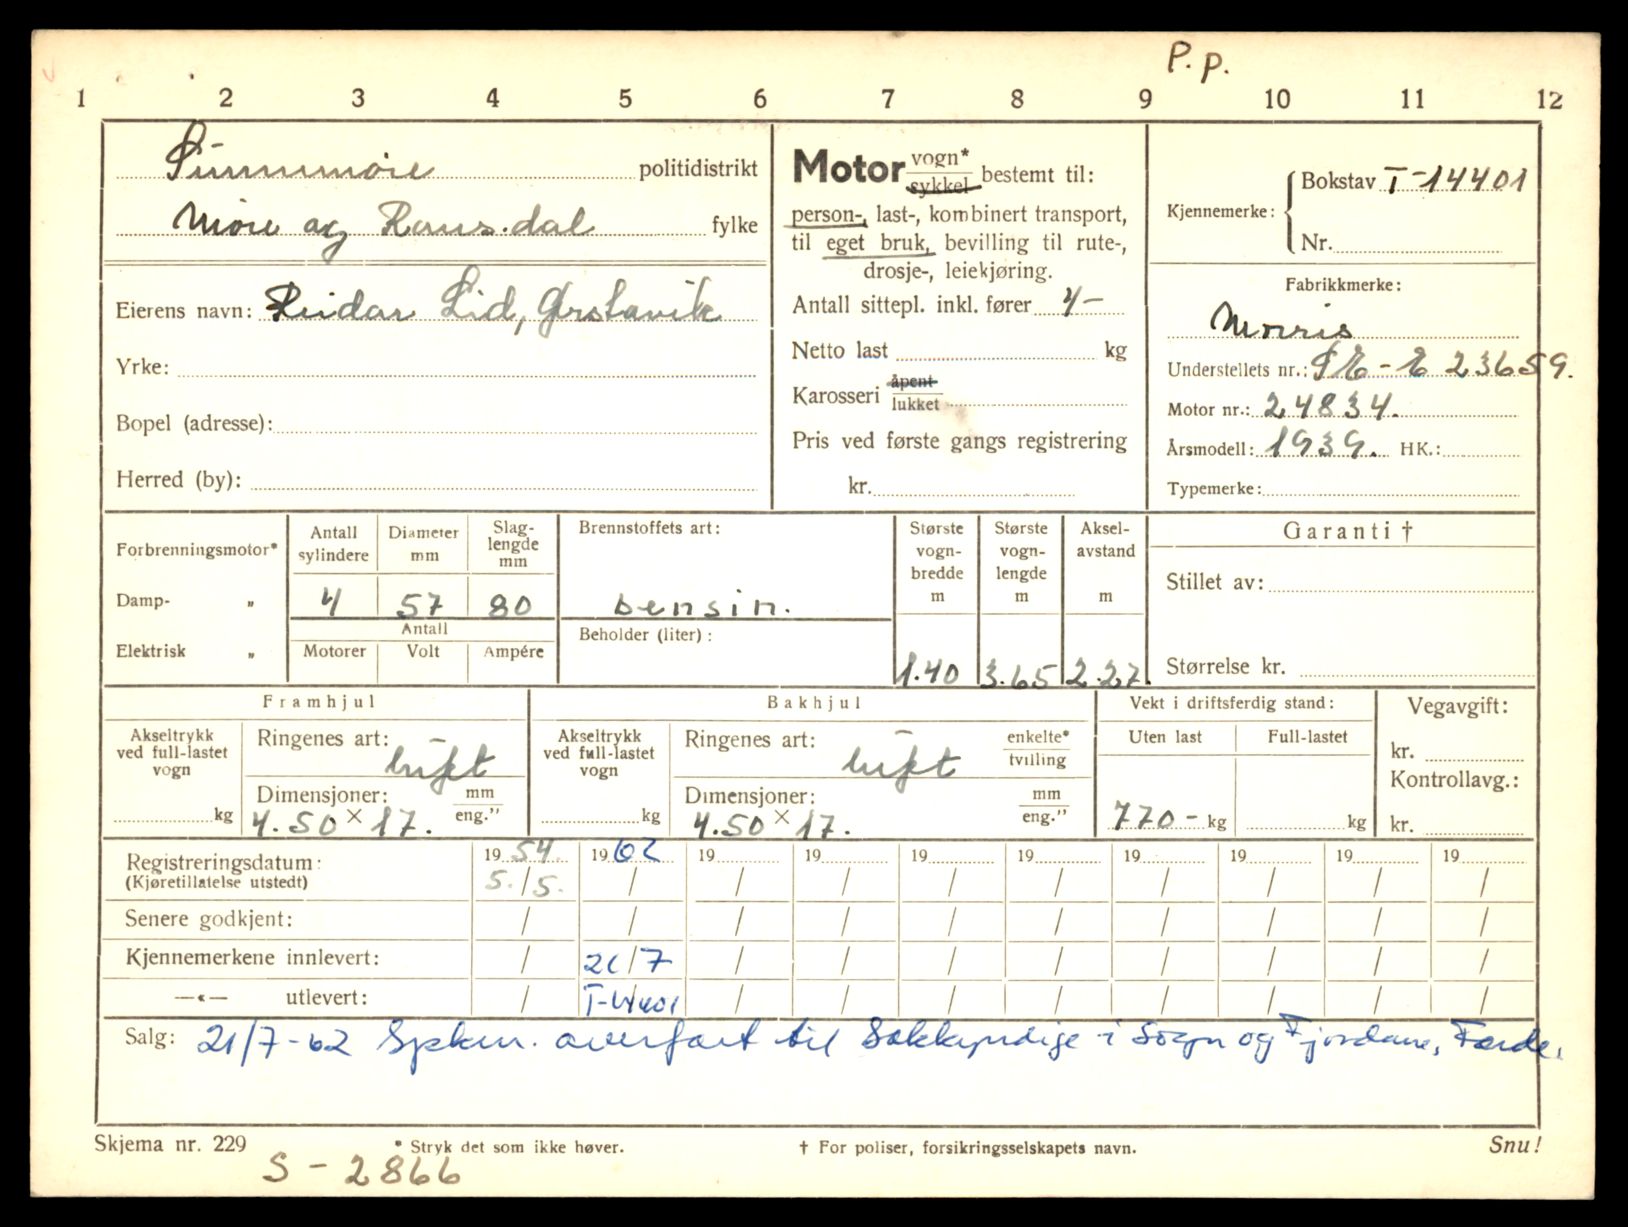 P. p.
1 2 3 4 5 6 7 8 9 10 11 12
Sunnmøre politidistrikt
Møre og Romsdal fylke
Eierens navn: Reidar Lid, Ørstavik
Yrke:
Bopel (adresse):
Herred (by):
Motor vogn* sykkel bestemt til:
person-, last-, kombinert transport,
til eget bruk, bevilling til rute-,
drosje-, leiekjøring.
Antall sittepl. inkl. fører 4-
Netto last kg
Karosseri åpent lukket
Pris ved første gangs registrering
kr.
Kjennemerke: Bokstav T-14401
Nr.
Fabrikkmerke:
Morris
Understellets nr.: SE-E 23659.
Motor nr.: 24834.
Årsmodell: 1939. HK.:
Typemerke:
Forbrenningsmotor*
Damp- „
Elektrisk „
Antall sylindere Diameter mm Slag-lengde mm
4 57 80
Antall
Motorer Volt Ampére
Brennstoffets art:
bensin.
Beholder (liter):
Største vogn-bredde m Største vogn-lengde m Aksel-avstand m
1.40 3.65 2.27.
Garanti †
Stillet av:
Størrelse kr.
Framhjul
Akseltrykk ved full-lastet vogn kg
Ringenes art: luft
Dimensjoner: mm eng."
4.50 × 17.
Bakhjul
Akseltrykk ved full-lastet vogn kg
Ringenes art: luft enkelte* tvilling
Dimensjoner: mm eng."
4.50 × 17.
Vekt i driftsferdig stand:
Uten last Full-lastet
770- kg kg
Vegavgift:
kr.
Kontrollavg.:
kr.
Registreringsdatum: 1954 1962 19 19 19 19 19 19 19 19
(Kjøretillatelse utstedt) 5./5. / / / / / / / / /
Senere godkjent: / / / / / / / / / /
Kjennemerkene innlevert: / 21/7 / / / / / / / /
—«— utlevert: / T-14401 / / / / / / / /
Salg: 21/7-62 Spkm. overført til Sakkyndige i Sogn og Fjordane, Førde.
Skjema nr. 229 * Stryk det som ikke høver. † For poliser, forsikringsselskapets navn. Snu!
S-2866